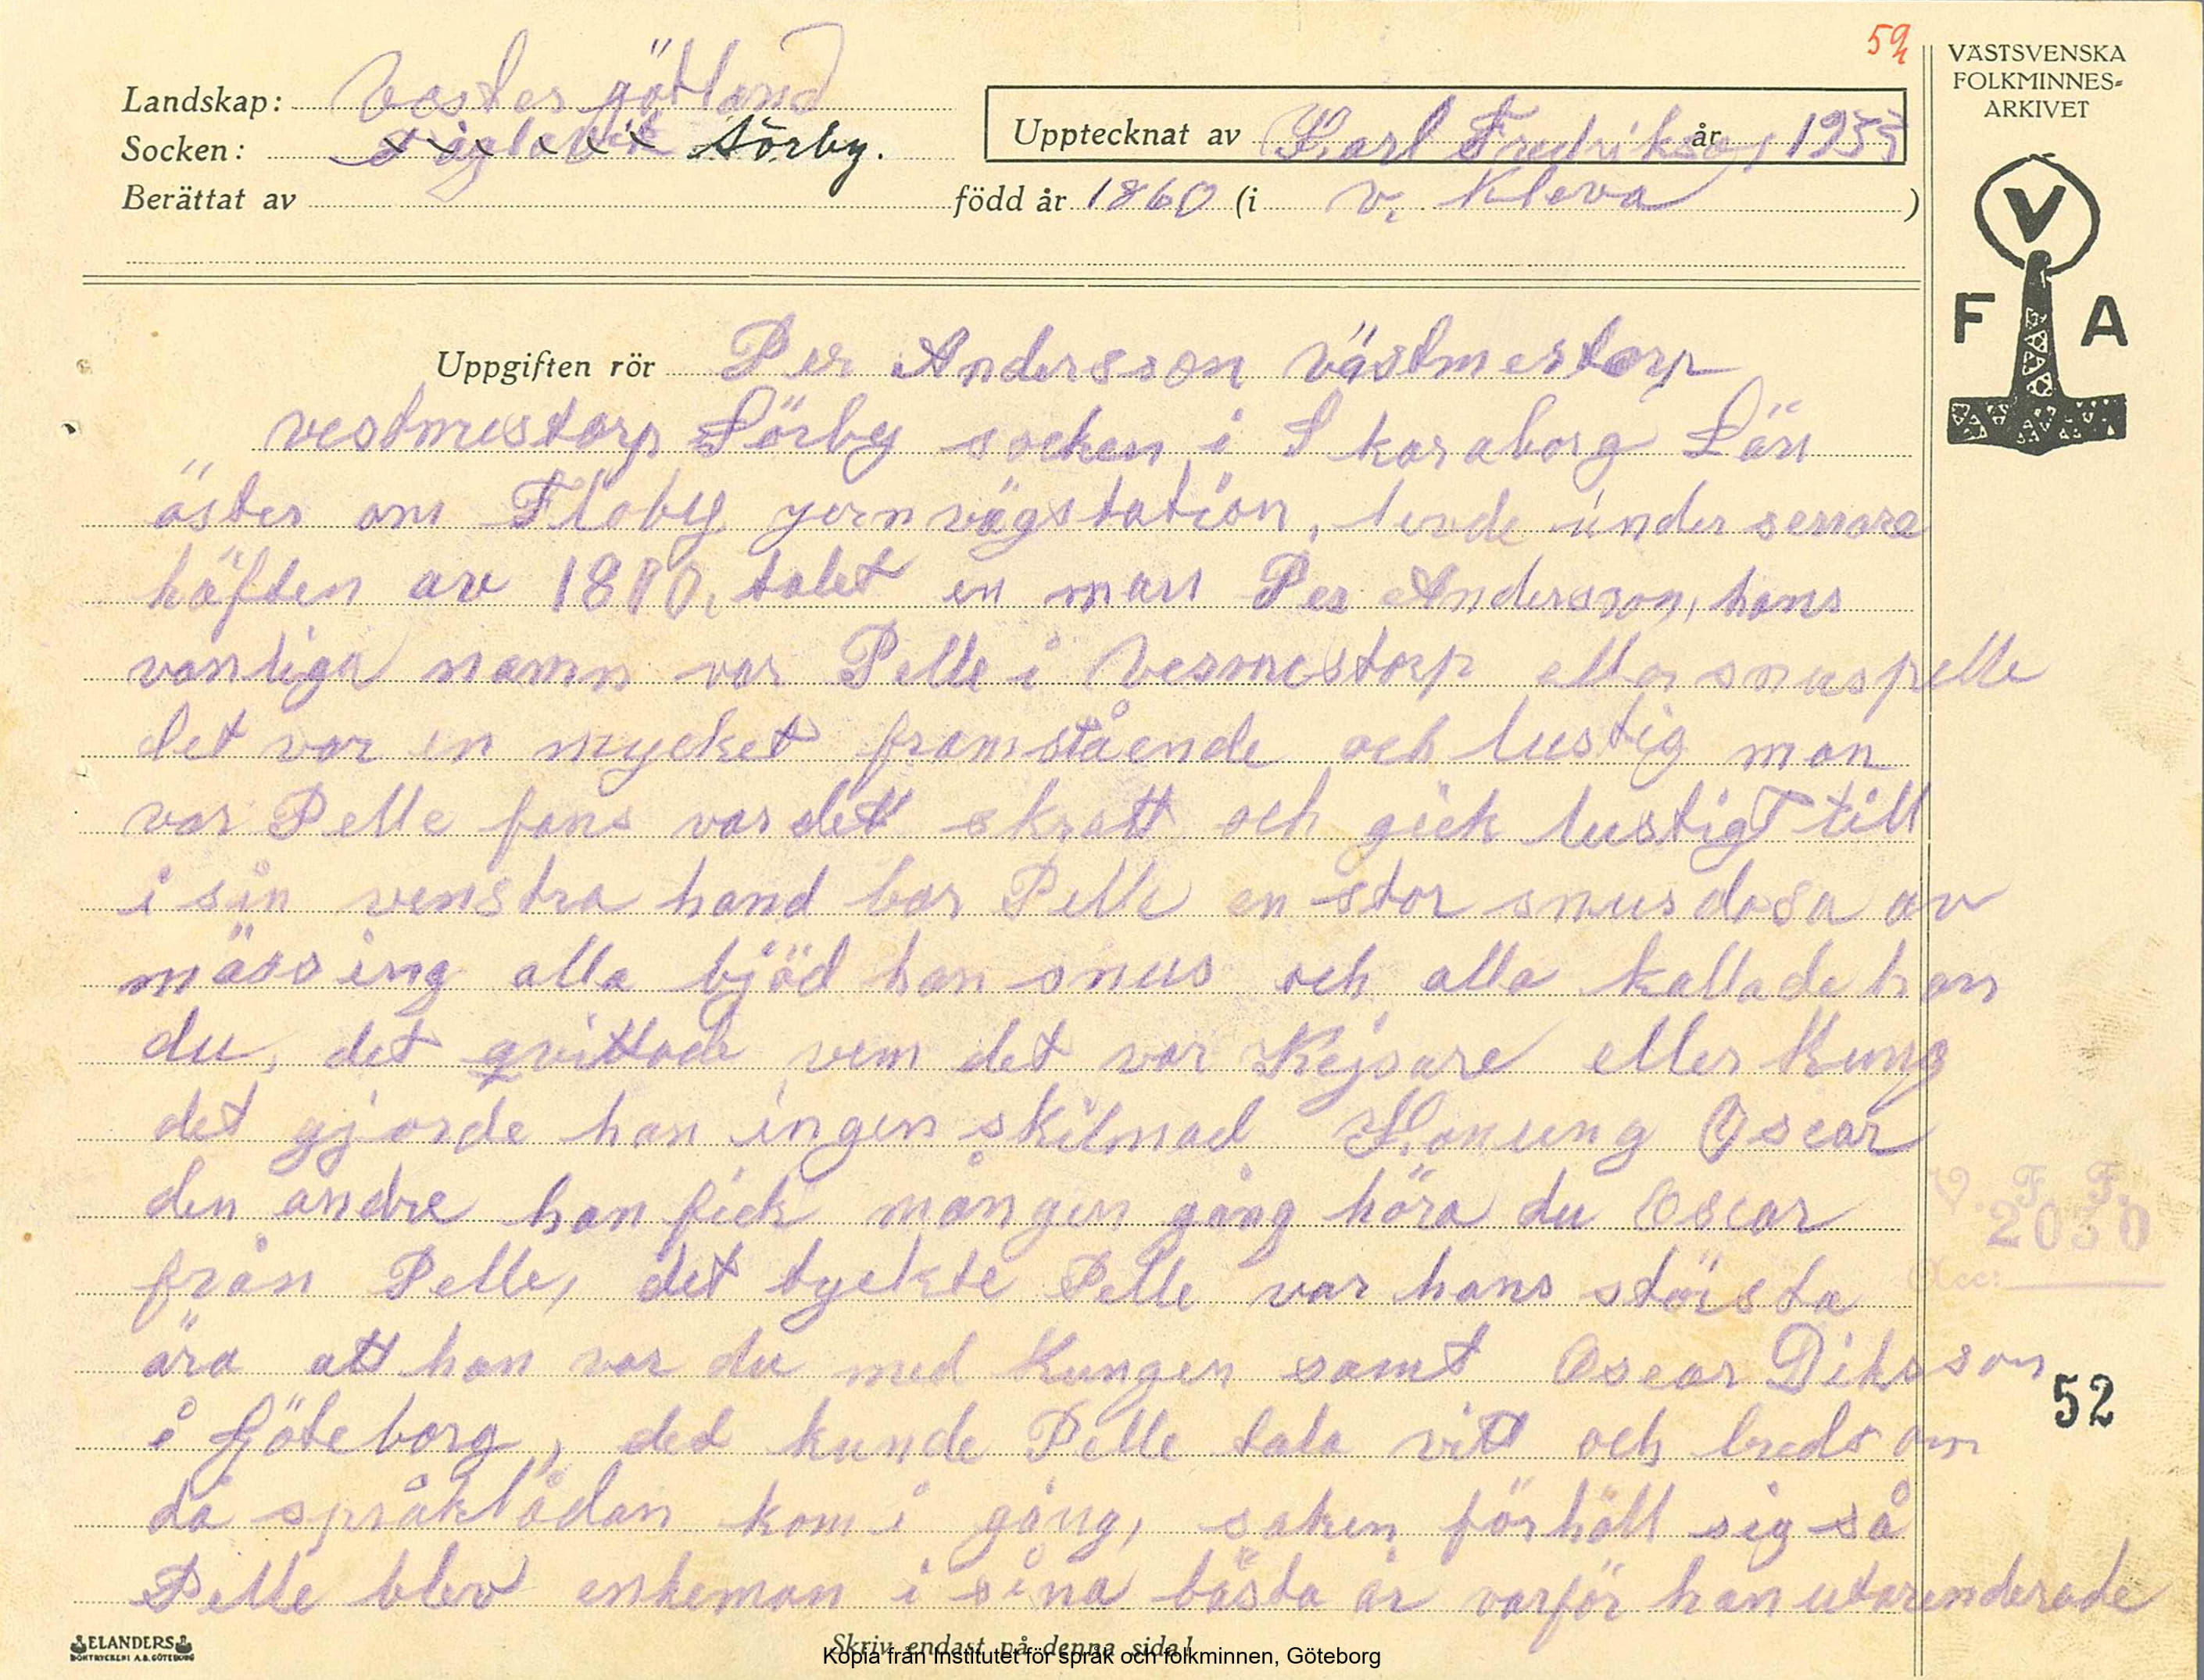 52
VÄSTSVENSKA
FOLKMINNES-
ARKIVET
Landskap: Vestergötland
Socken: Sörby.
Upptecknat av Karl Fredrikson år 1933
Berättat av född år 1860 (i V. Kleva)
V
F A
Uppgiften rör Per Andersson västmestorp
vestmestorp Sörby socken i Skaraborg Län
öster om Floby yernvägstation, levde under senare
häften av 1800, talet en man Per Andersson, hans
vanliga namn var Pelle i Vesmestorp eller snuspelle
det var en mycket framstående och lustig man
var Pelle fans var det skratt och gick lustigt till
i sin venstra hand bar Pelle en stor snusdosa av
mässing alla bjöd han snus och alla kallade han
du, det qvittade vem det var Kejsare eller Kung
det gjorde han ingen skilnad Konung Oscar
den andre han fick mången gång höra du Oscar
från Pelle, det tyckte Pelle var hans största
ära att han var du med Kungen samt Oscar Diksson
i Göteborg, det kunde Pelle tala vitt och bredt om
då språklådan kom i gång, saken förhöll sig så
Pelle blev enkeman i sina bästa år varför han utarenderade
V. F. F.
2030
Acc:
52
ELANDERS
BOKTRYCKERI A.B. GÖTEBORG
Skriv endast på denna sida!
Kopia från Institutet för språk och folkminnen, Göteborg